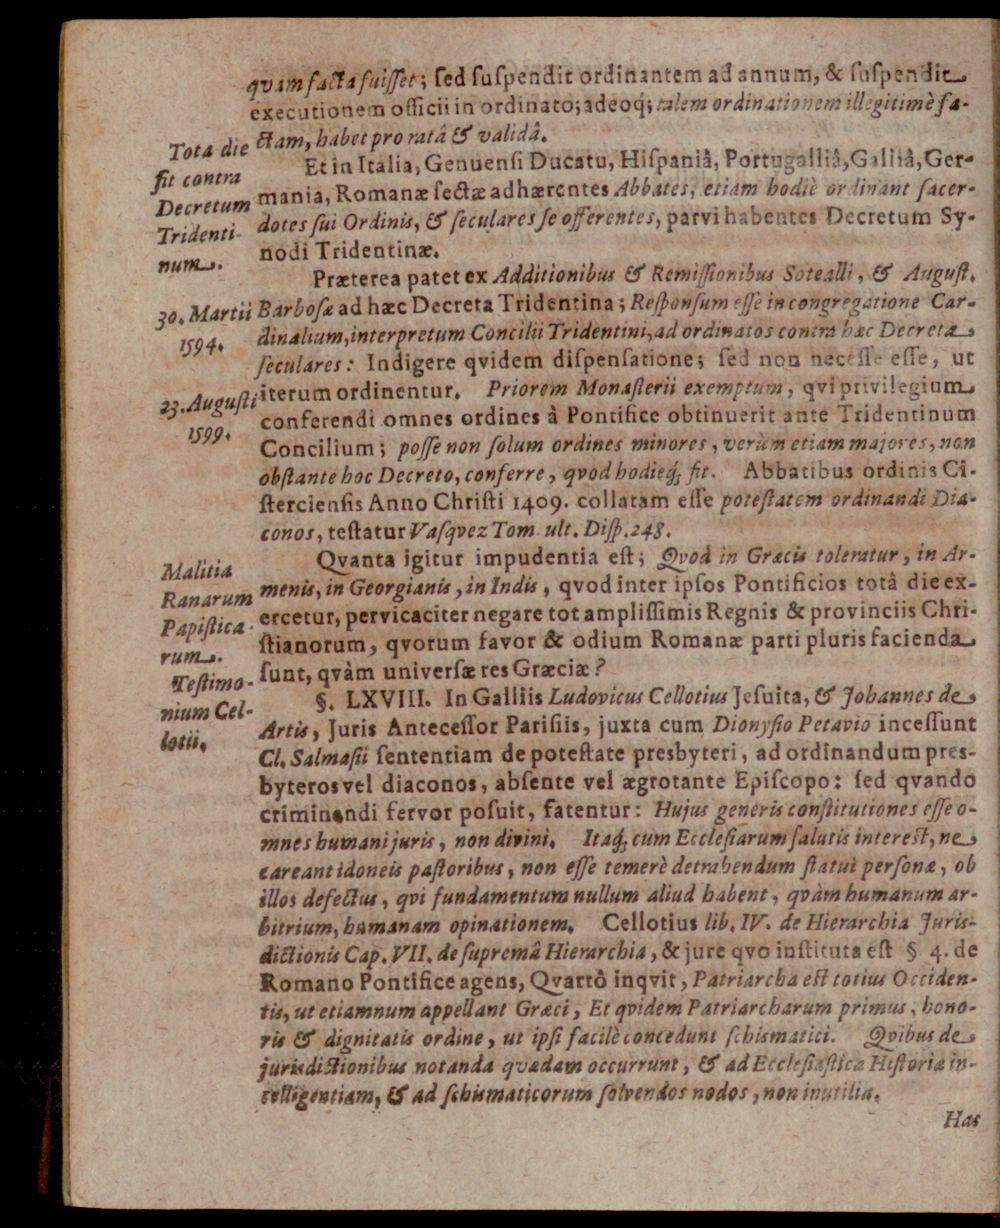 qvam facta fuiſſet; ſed ſuſpendit ordinantem ad annum, & ſuſpendit
executionem officii in ordinato; adeoq́; talem ordinationem illegitimè fa-
ctam, habet pro ratâ & validâ.
Tota die
fit contra
Decretum
Tridenti-
num.
Et in Italia, Genuenſi Ducatu, Hiſpaniâ, Portugalliâ, Galliâ, Ger-
mania, Romanæ ſectæ adhærentes Abbates, etiam hodiè ordinant ſacer-
dotes ſui Ordinis, & ſeculares ſe offerentes, parvi habentes Decretum Sy-
nodi Tridentinæ.
Præterea patet ex Additionibus & Remiſſionibus Sotealli, & Auguſt.
30. Martii
1594.
Barboſæ ad hæc Decreta Tridentina; Reſponſum eſſe in congregatione Car-
dinalium, interpretum Concilii Tridentini, ad ordinatos contra hæc Decreta
ſeculares: Indigere qvidem diſpenſatione; ſed non neceſſe eſſe, ut
23. Auguſti
1599.
iterum ordinentur. Priorem Monaſterii exemptum, qvi privilegium
conferendi omnes ordines à Pontifice obtinuerit ante Tridentinum
Concilium; poſſe non ſolum ordines minores, verùm etiam majores, non
obſtante hoc Decreto, conferre, qvod hodieq́; fit. Abbatibus ordinis Ci-
ſtercienſis Anno Chriſti 1409. collatam eſſe poteſtatem ordinandi Dia-
conos, teſtatur Vaſqvez Tom. ult. Diſp. 248.
Malitia
Ranarum
Papiſtica-
rum.
Qvanta igitur impudentia eſt; Qvod in Græcis toleratur, in Ar-
menis, in Georgianis, in Indis, qvod inter ipſos Pontificios totâ die ex-
ercetur, pervicaciter negare tot ampliſſimis Regnis & provinciis Chri-
ſtianorum, qvorum favor & odium Romanæ parti pluris facienda
ſunt, qvàm univerſæ res Græciæ?
Teſtimo-
nium Cel-
lotii.
§. LXVIII. In Galliis Ludovicus Cellotius Jeſuita, & Johannes de
Artis, Juris Anteceſſor Pariſiis, juxta cum Dionyſio Petavio inceſſunt
Cl. Salmaſii ſententiam de poteſtate presbyteri, ad ordinandum pres-
byteros vel diaconos, abſente vel ægrotante Epiſcopo: ſed qvando
criminandi fervor poſuit, fatentur: Hujus generis conſtitutiones eſſe o-
mnes humani juris, non divini. Itaq́; cum Eccleſiarum ſalutis intereſt, ne
careant idoneis paſtoribus, non eſſe temerè detrahendum ſtatui perſonæ, ob
illos defectus, qvi fundamentum nullum aliud habent, qvàm humanum ar-
bitrium, humanam opinationem. Cellotius lib. IV. de Hierarchia Juris-
dictionis Cap. VII. de ſupremâ Hierarchia, & jure qvo inſtituta eſt § 4. de
Romano Pontifice agens, Qvartò inqvit, Patriarcha eſt totius Occiden-
tis, ut etiamnum appellant Græci, Et qvidem Patriarcharum primus, hono-
ris & dignitatis ordine, ut ipſi facilè concedunt ſchismatici. Qvibus de
jurisdictionibus notanda quædam occurrunt, & ad Eccleſiaſticæ Hiſtoriæ in-
telligentiam, & ad ſchismaticorum ſolvendos nodos, non inutilia.
Has